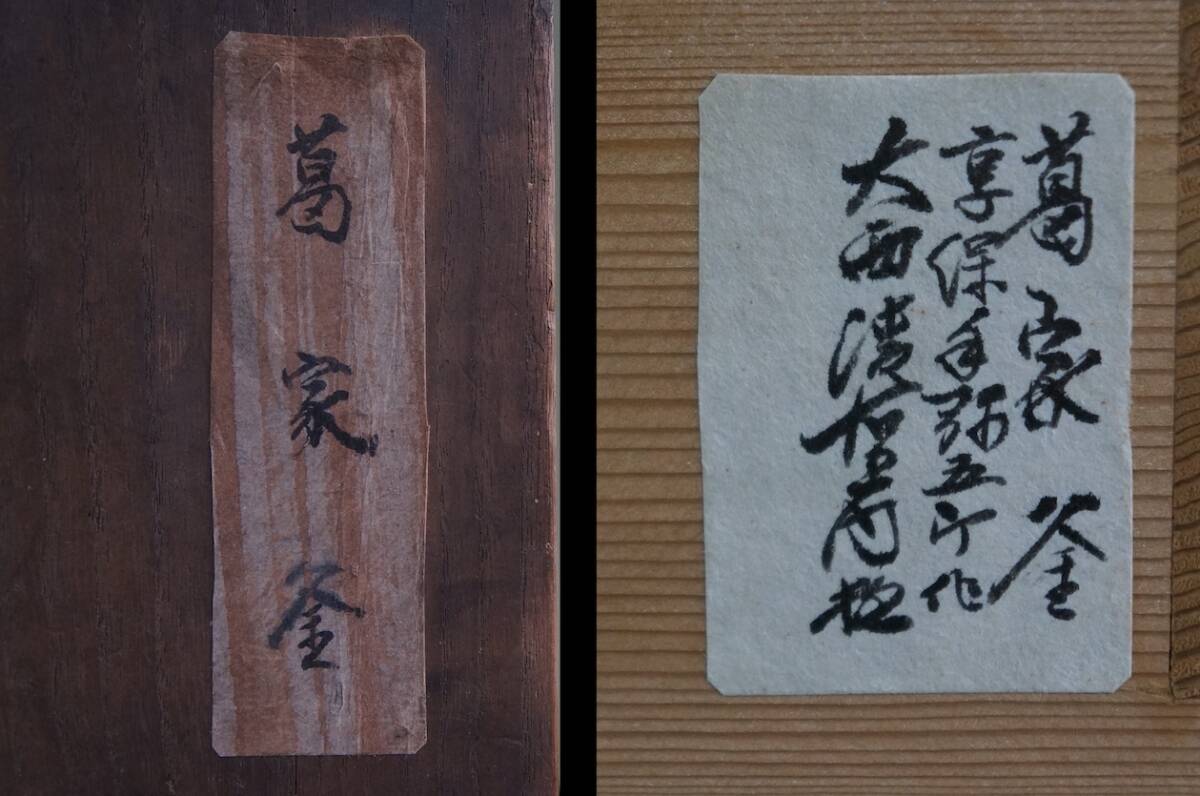 葛家釜
葛家釜
享保年弥五郎作
大西清右衛門極